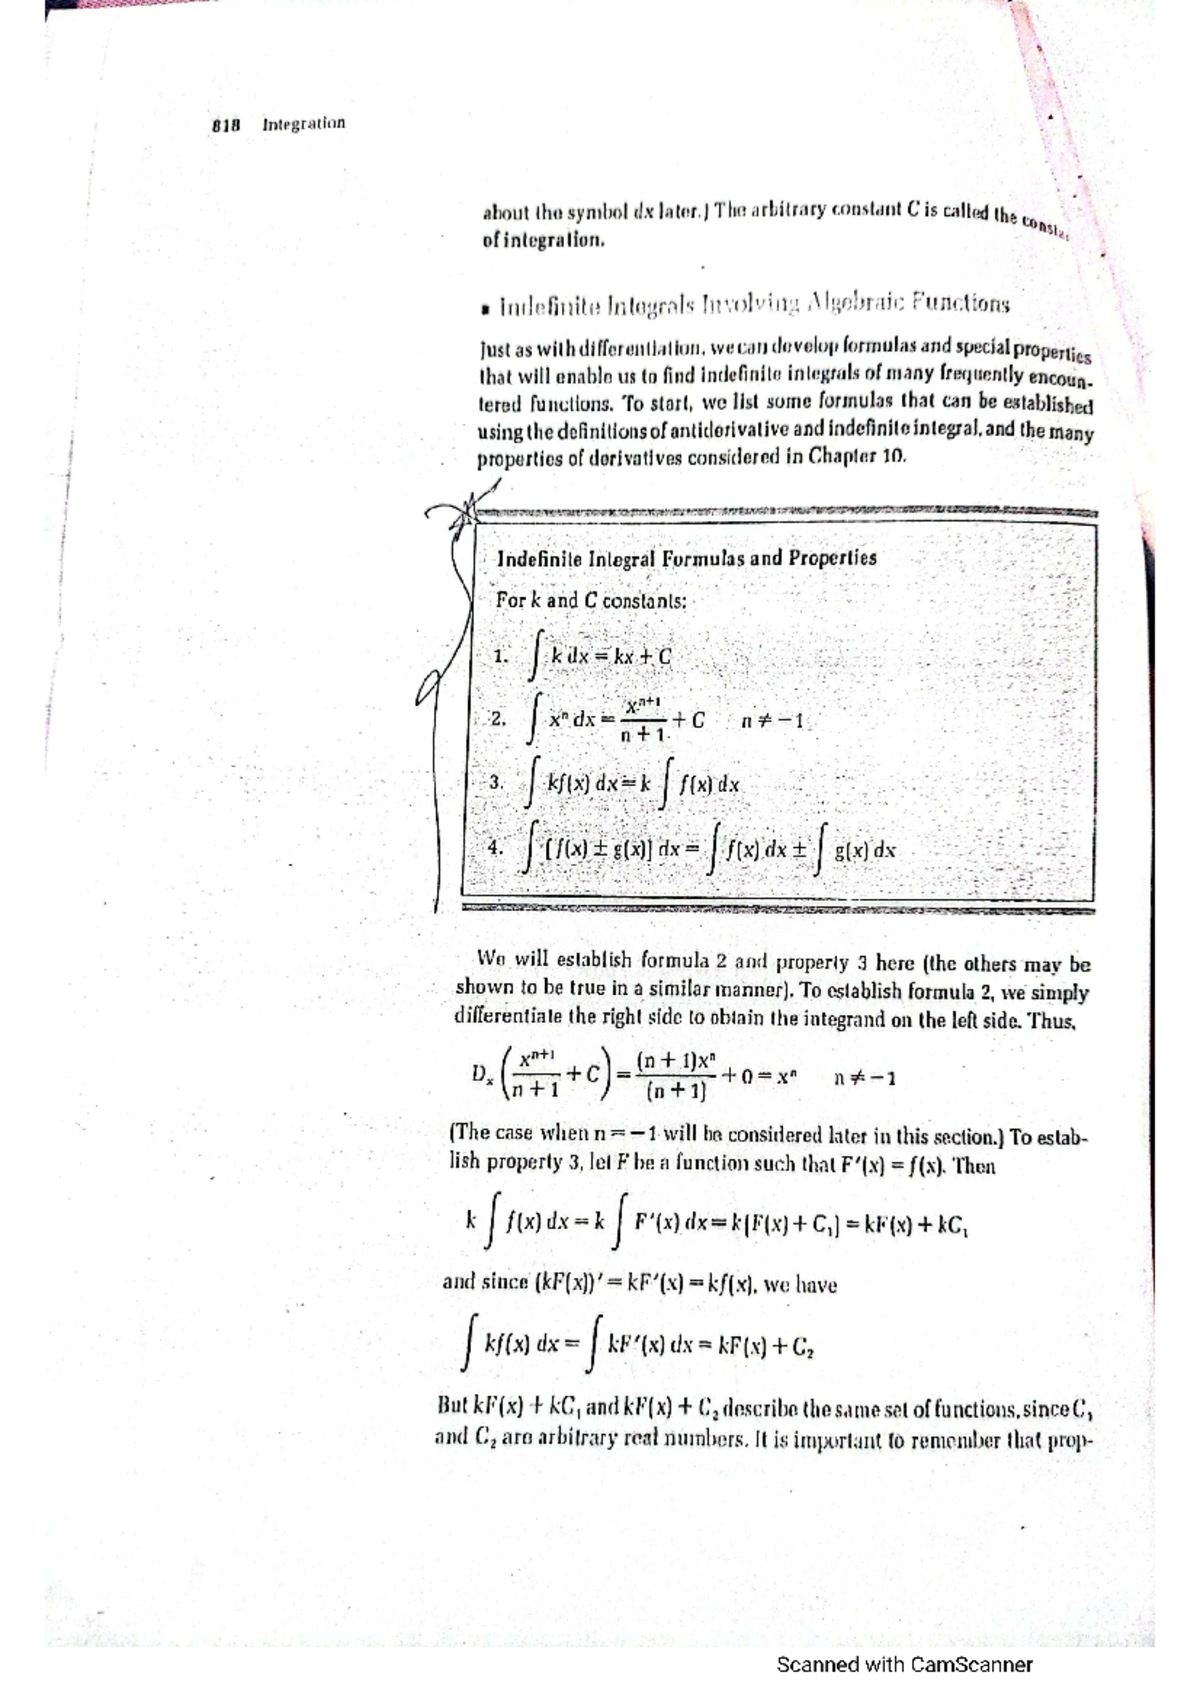 818 Integration
about the symbol dx later.) The arbitrary constant C is called the
of integration.
▪ Indefinite Integrals Involving Algebraic Functions
Just as with differentiation, we can develop formulas and special properties
that will enable us to find indefinite integrals of many frequently encoun-
tered functions. To start, we list some formulas that can be established
using the definitions of antiderivative and indefinite integral, and the many
properties of derivatives considered in Chapter 10.
Indefinite Integral Formulas and Properties
For k and C constants:
1. ∫ k dx = kx + C
2. ∫ xⁿ dx = xⁿ⁺¹/(n + 1) + C n ≠ −1
3. ∫ kf(x) dx = k ∫ f(x) dx
4. ∫ [f(x) ± g(x)] dx = ∫ f(x) dx ± ∫ g(x) dx
We will establish formula 2 and property 3 here (the others may be
shown to be true in a similar manner). To establish formula 2, we simply
differentiate the right side to obtain the integrand on the left side. Thus,
Dₓ (xⁿ⁺¹/(n + 1) + C) = (n + 1)xⁿ/(n + 1) + 0 = xⁿ n ≠ −1
(The case when n = −1 will be considered later in this section.) To estab-
lish property 3, let F be a function such that F′(x) = f(x). Then
k ∫ f(x) dx = k ∫ F′(x) dx = k[F(x) + C₁] = kF(x) + kC₁
and since (kF(x))′ = kF′(x) = kf(x), we have
∫ kf(x) dx = ∫ kF′(x) dx = kF(x) + C₂
But kF(x) + kC₁ and kF(x) + C₂ describe the same set of functions, since C₁
and C₂ are arbitrary real numbers. It is important to remember that prop-
Scanned with CamScanner